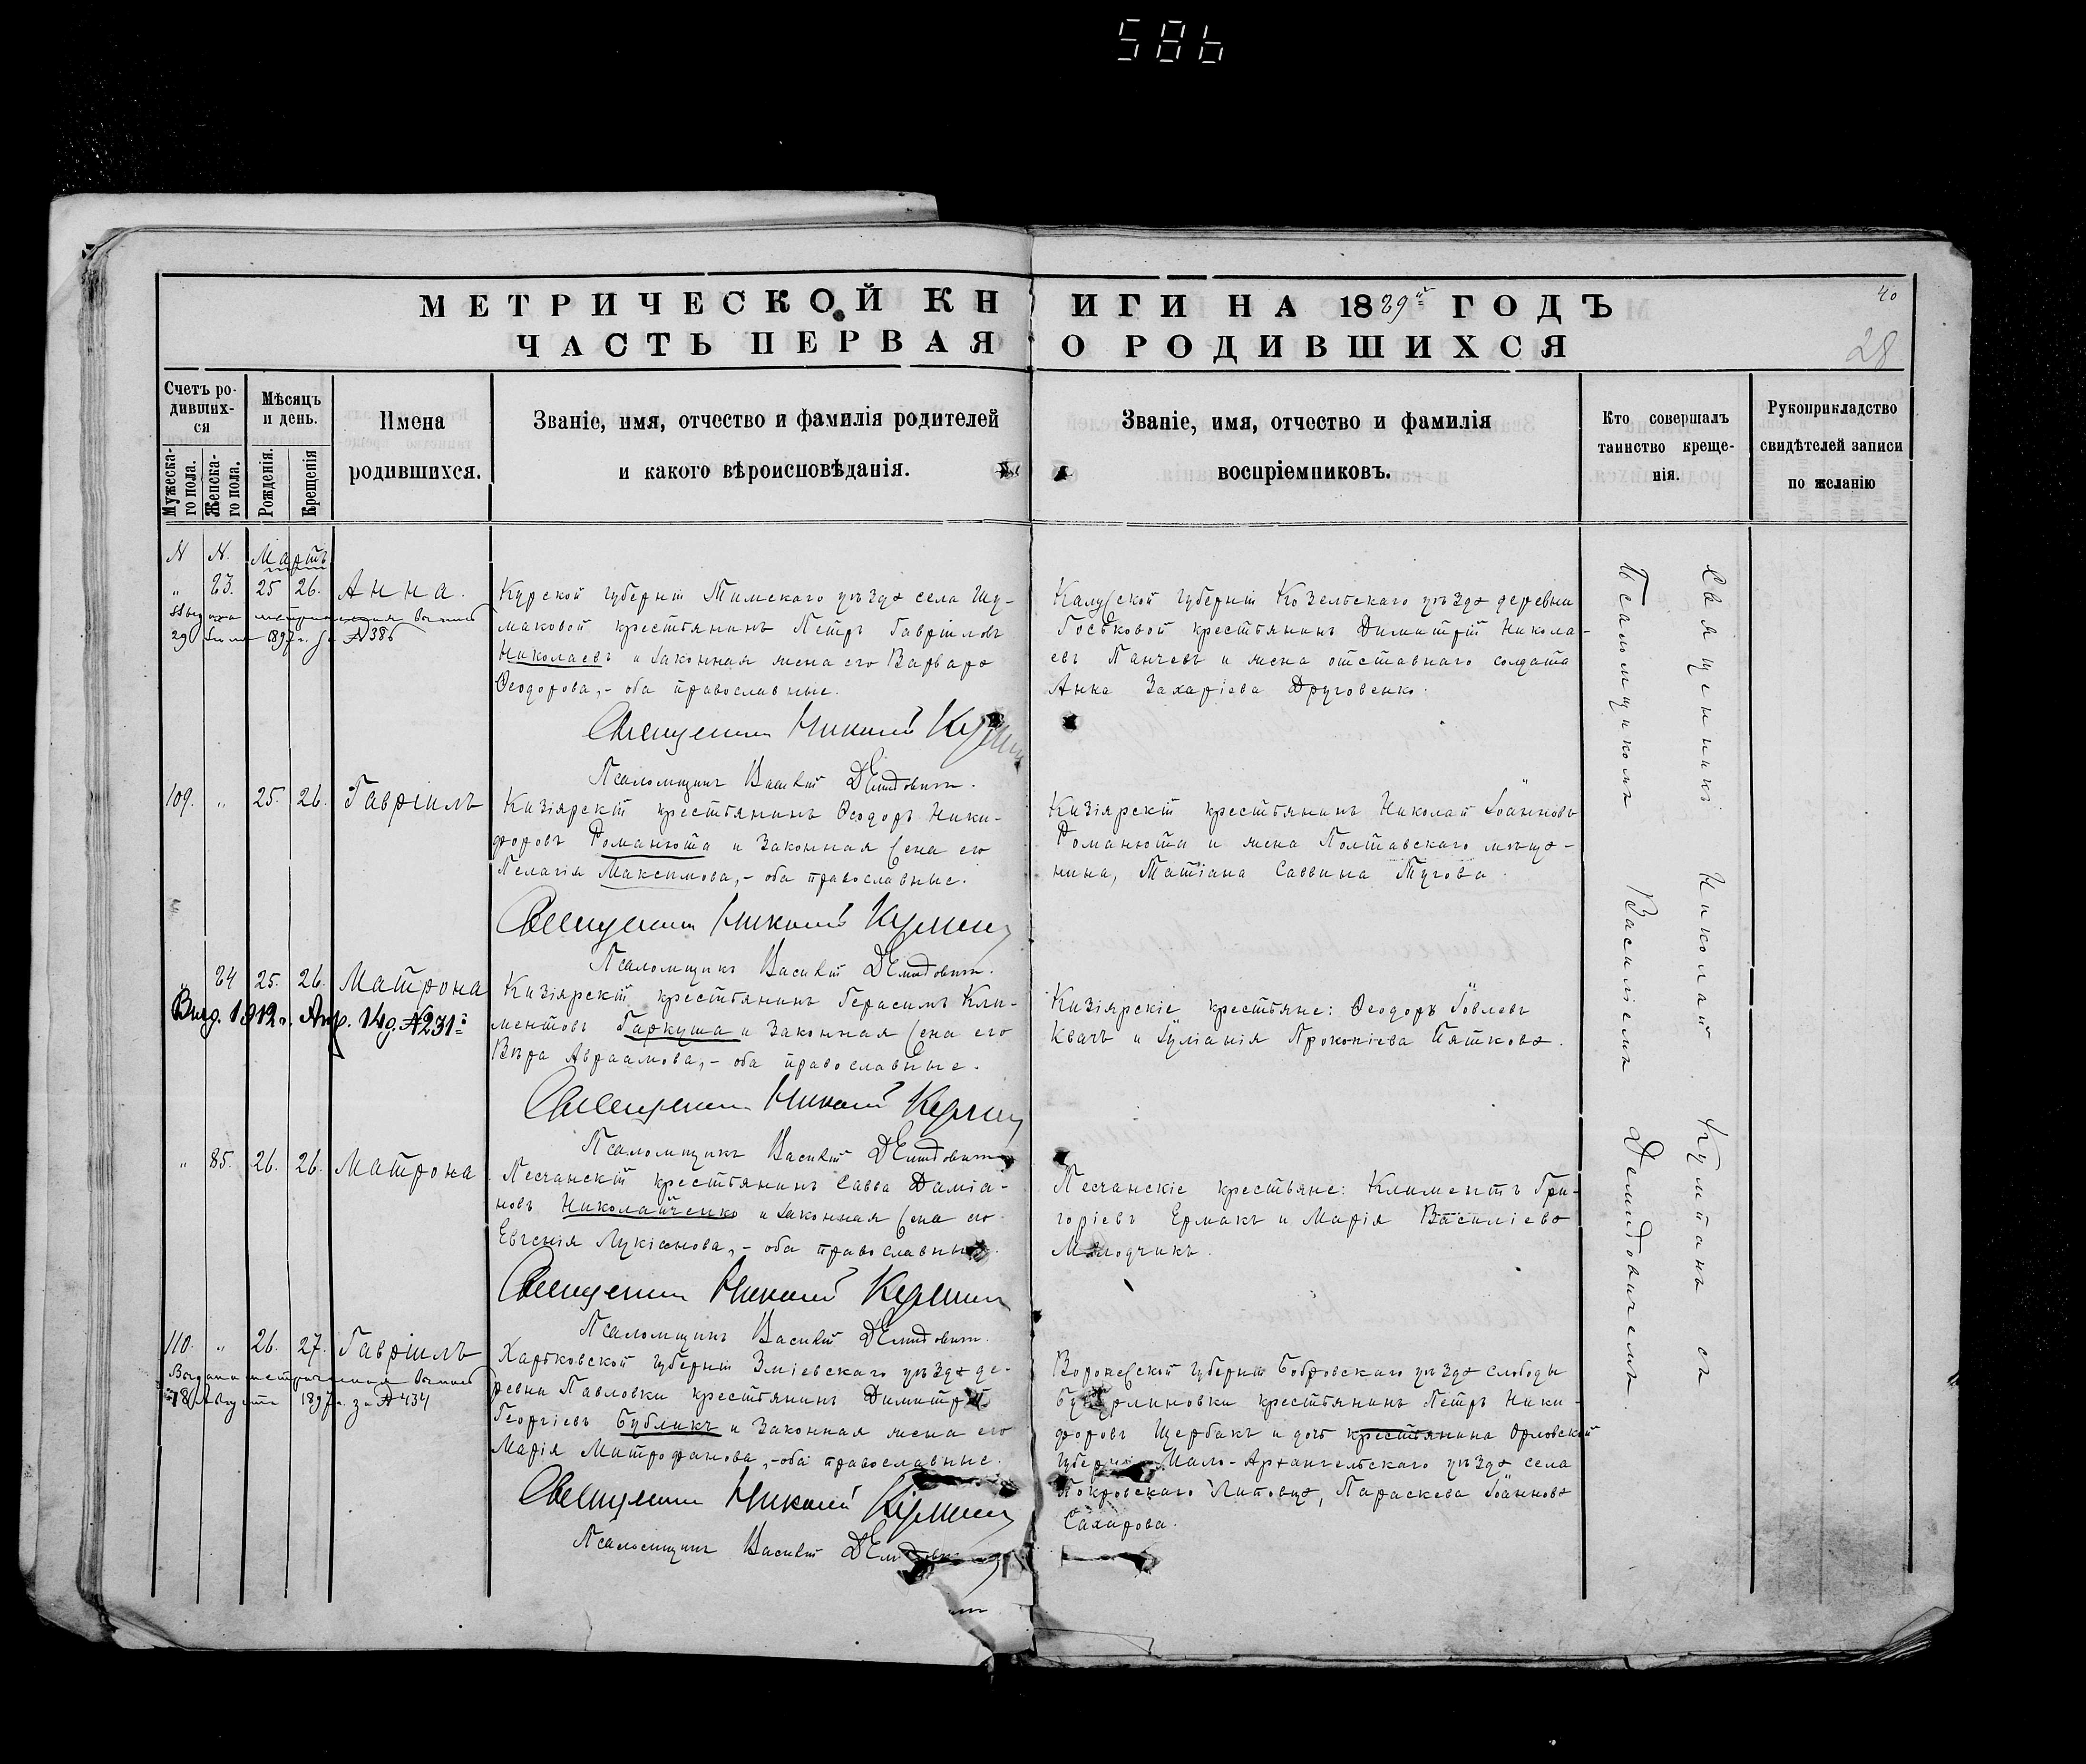 586
МЕТРИЧЕСКОЙ КНИГИ НА 1889й ГОДЪ
40
ЧАСТЬ ПЕРВАЯ О РОДИВШИХСЯ
28
Счетъ родившихся
Мужескаго пола.
Женскаго пола.
Мѣсяцъ и день.
Рожденія.
Крещенія
Имена
родившихся.
Званіе, имя, отчество и фамилія родителей
и какого вѣроисповѣданія.
Званіе, имя, отчество и фамилія
воспріемниковъ.
Кто совершалъ
таинство креще-
нія.
Рукоприкладство
свидѣтелей записи
по желанію
N N. Мартъ
„ 83. 25 26. Анна.
Выдана метрическая выпись
29 1897 г. за N 386
Курской губерніи Тимскаго уѣзда села Шу-
маковой крестьянинъ Петръ Гавріиловъ
Николаевъ и законная жена его Варвара
Ѳеодорова, - оба православные.
Священникъ Николай
Псаломщикъ Василій Демидовичъ.
Калужской губерніи Козельскаго уѣзда деревни
Госьковой крестьянинъ Димитрій Никола-
евъ Панчевъ и жена отставнаго солдата
Анна Захаріева Друговенко.
109. „ 25. 26. Гавріилъ
Кизіярскій крестьянинъ Ѳеодоръ Ники-
форовъ Романюта и законная жена его
Пелагія Максимова, - оба православные.
Священникъ Николай
Псаломщикъ Василій Демидовичъ.
Кизіярскій крестьянинъ Николай Іоанновъ
Романюта и жена Полтавскаго мѣща-
нина, Татіана Саввина Тугова.
„ 84 25. 26. Матрона
Выд. 1912 г. Апр. 14 д. N 231й
Кизіярскій крестьянинъ Герасимъ Кли-
ментовъ Гаркуша и законная жена его
Вѣра Авраамова, - оба православные.
Священникъ Николай
Псаломщикъ Василій Демидовичъ
Кизіярскіе крестьяне: Ѳеодоръ Іовлевъ
Квачъ и Іуліанія Прокопіева Пяткова.
„ 85. 26. 26. Матрона
Песчанскій крестьянинъ Савва Даміа-
новъ Николайченко и законная жена его
Евгенія Лукіанова, - оба православные.
Священникъ Николай
Псаломщикъ Василій Демидовичъ.
Песчанскіе крестьяне: Климентъ Гри-
горіевъ Ермакъ и Марія Василіева
Молодчикъ.
110. „ 26. 27. Гавріилъ
Выдана метрическая выпись
18 Августа 1897 г. за N 434
Харьковской губерніи Зміевскаго уѣзда де-
ревни Павловки крестьянинъ Димитрій
Георгіевъ Бубликъ и законная жена его
Марія Митрофанова, - оба православные.
Священникъ Николай
Псаломщикъ Василій
Воронежской губерніи Бобровскаго уѣзда слободы
Бутурлиновки крестьянинъ Петръ Ники-
форовъ Щербакъ и дочь крестьянина Орловской
губерніи Мало-Архангельскаго уѣзда села
Покровскаго Липовца, Параскева Іоаннова
Сахарова.
Священникъ Николай Кулманъ съ
Псаломщикомъ Василіемъ Демидовичемъ.